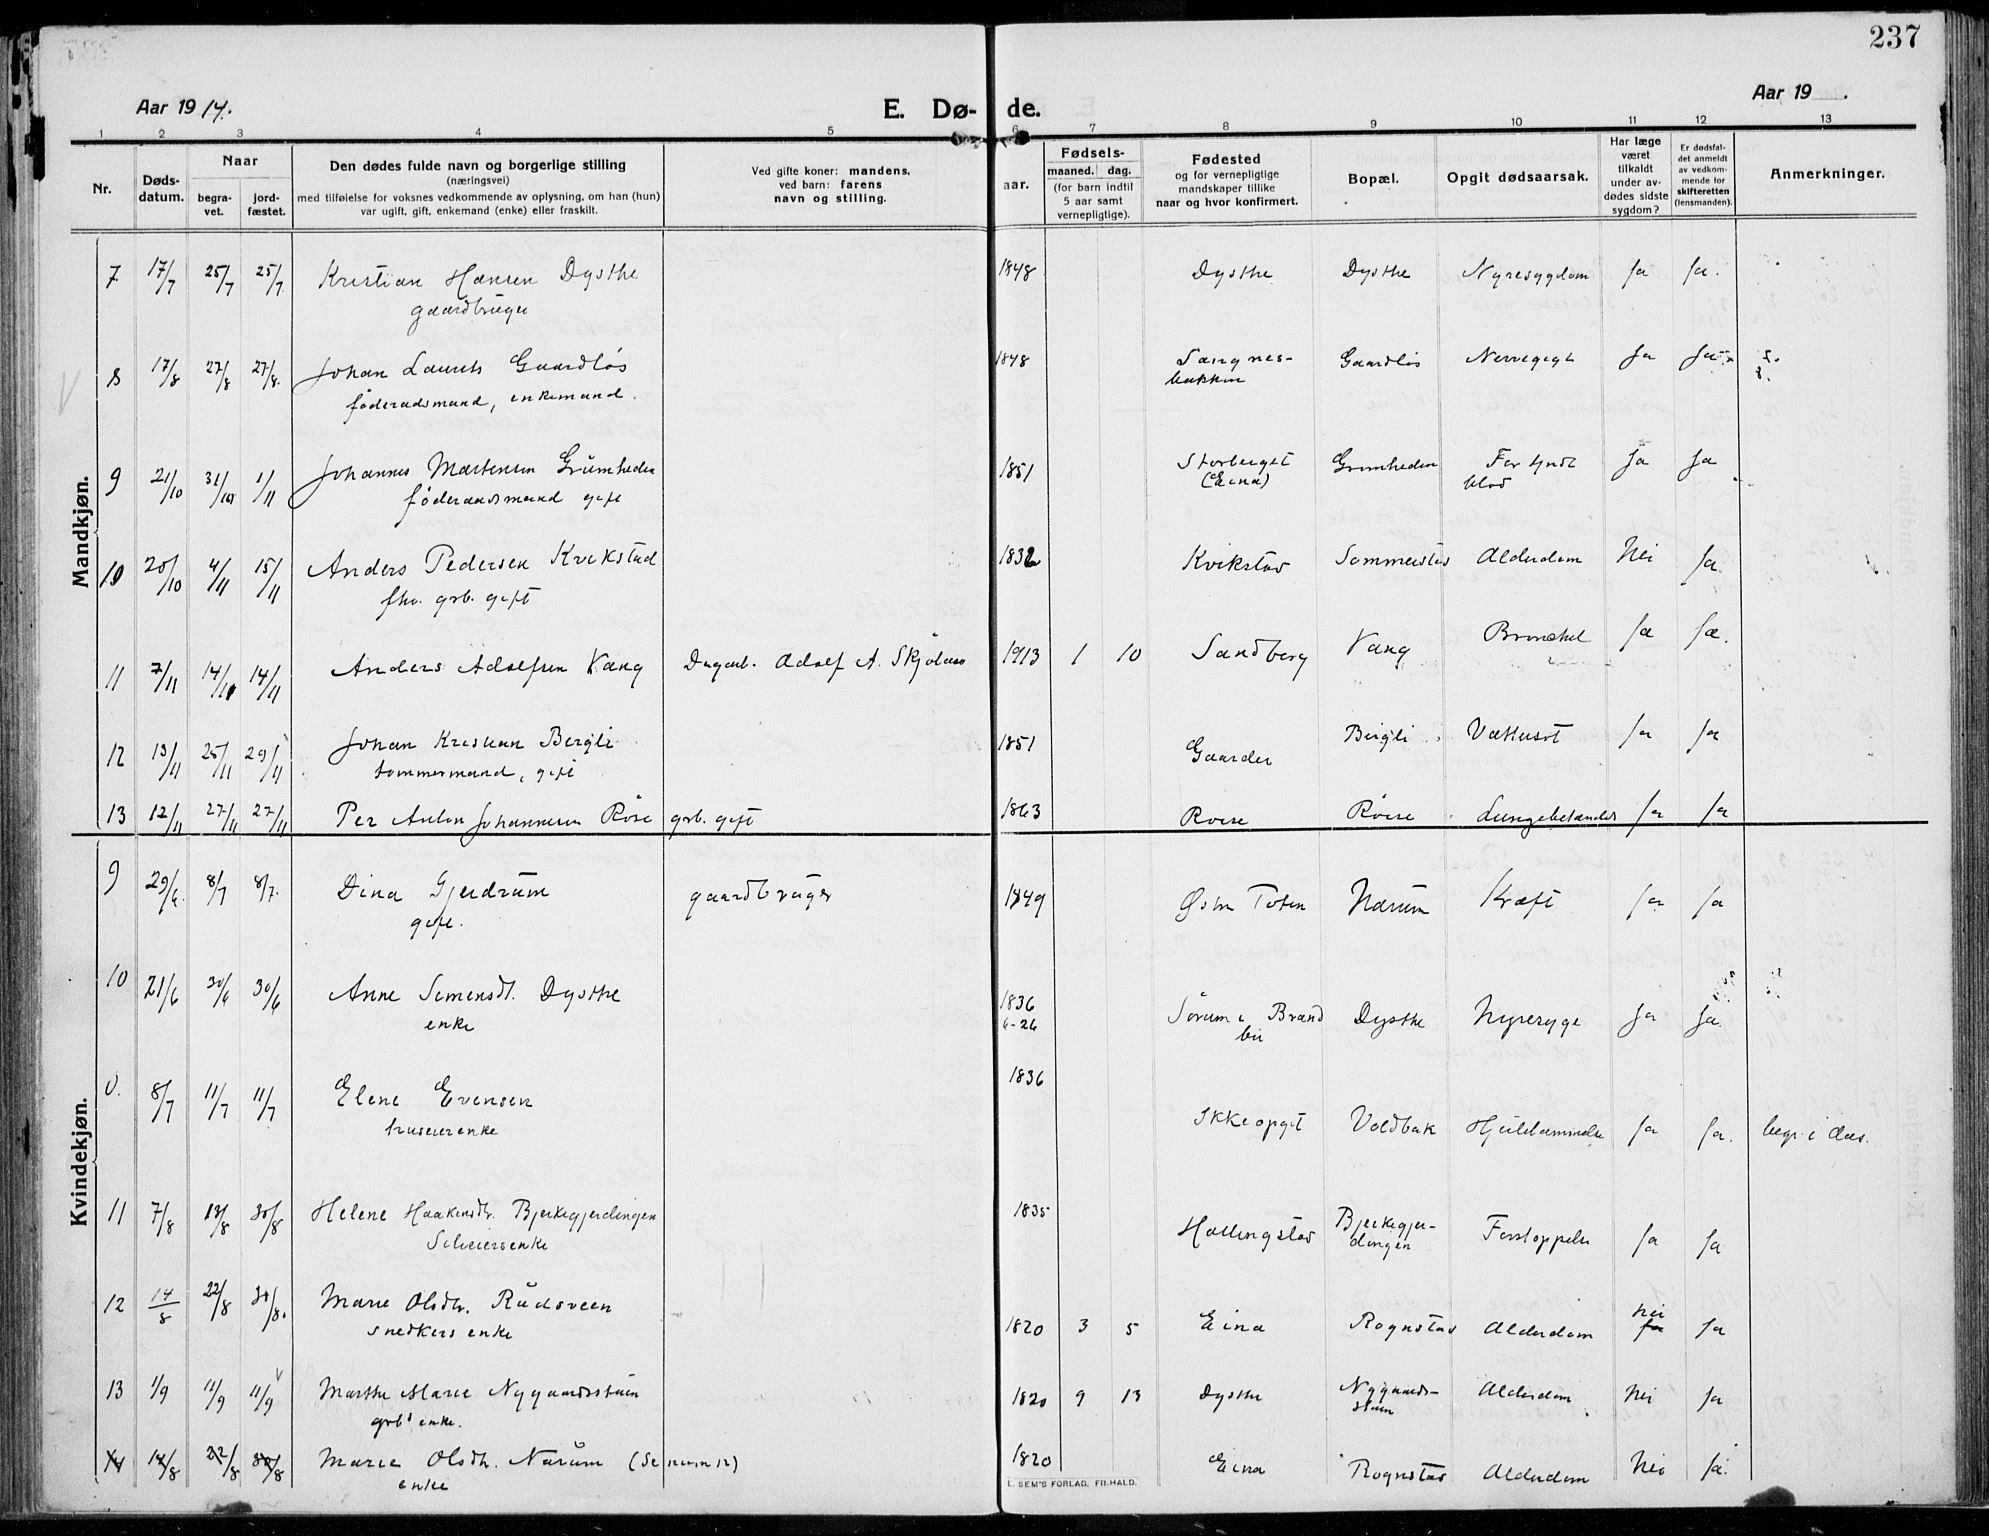 237
Aar 1914.
E. Dø- de.
Aar 19 .
1 2 3 4 5 6 7 8 9 10 11 12 13
Nr.
Døds-
datum.
Naar
begra-
vet.
jord-
fæstet.
Den dødes fulde navn og borgerlige stilling
(næringsvei)
med tilføielse for voksnes vedkommende av oplysning, om han (hun)
var ugift, gift, enkemand (enke) eller fraskilt.
Ved gifte koner: mandens,
ved barn: farens
navn og stilling.
aar.
Fødsels-
maaned. dag.
(for barn indtil
5 aar samt
vernepligtige).
Fødested
og for vernepligtige
mandskaper tillike
naar og hvor konfirmert.
Bopæl.
Opgit dødsaarsak.
Har læge
været
tilkaldt
under av-
dødes sidste
sygdom?
Er dødsfal-
det anmeldt
av vedkom-
mende for
skifteretten
(lensmanden).
Anmerkninger.
Mandkjøn.
7 17/7 25/7 25/7 Kristian Hansen Dysthe 1848 Dysthe Dysthe Nyresygdom Ja Ja.
gaardbruger
8 17/8 27/8 27/8. Johan Laurits Gaardløs 1848 Sangnes- Gaardløs Nervegigt Ja Ja
føderaadsmand, enkemand. bakken
9 21/10 31/10 1/11 Johannes Martensen Grumheden 1851 Storberget Grumheden For tyndt Ja Ja
føderaadsmand gift (Eina) blod
10 20/10 4/11 15/11 Anders Pedersen Kvikstad 1832 Kvikstad Sommerstad Alderdom Nei Ja
fhv. grb. gift
11 7/11 14/11 14/11 Anders Adolfsen Vang Dagarb. Adolf A. Skjølaas 1913 1 10 Sandberg Vang Bronchit Ja Ja.
12 13/11 25/11 29/11 Johan Kristian Bergli 1851 Gaarder Bergli Vattersot Ja Ja
tømmermand, gift
13 12/11 27/11 27/11 Per Anton Johannesen Røise grb. gift 1863 Roise Røise Lungebetændels Ja Ja
Kvindekjøn.
9 29/6. 8/7 8/7. Dina Gjerdrum gaardbruger 1849 Østre Toten Narum Kræft Ja Ja
gift.
10 21/6 30/6 30/6 Anne Simensdt. Dysthe 1836 Sørum i Brand Dysthe Nyresyge Ja Ja.
enke 6-26 bu
8/7 11/7 11/7 Elene Evensen 1836 Ikke opgit Voldbak Hjertelammelse Ja Ja. begr. i Aas.
huseierenke
11 7/8 13/8 30/8 Helene Haakensdtr. Bjerkegjerdingen 1835 Hallingstad Bjerkegjer- Forstoppelse Ja Ja
Selveiersenke dingen
12 14/8 22/8 30/8. Marie Olsdtr. Rudsveen 1820 3 5 Eina Rognstad Alderdom Nei Ja
snedkers enke
13 1/9 11/9 11/9 Marthe Marie Nygaardsstuen 1820 9 13 Dysthe Nygaards- Alderdom Nei Ja
grbs enke. stuen
14 14/8 22/8 30/8 Marie Olsdtr. Narum (Se num 12) 1820 Eina Rognstad Alderdom Nei Ja.
enke
L. SEM'S FORLAG, FR.HALD.